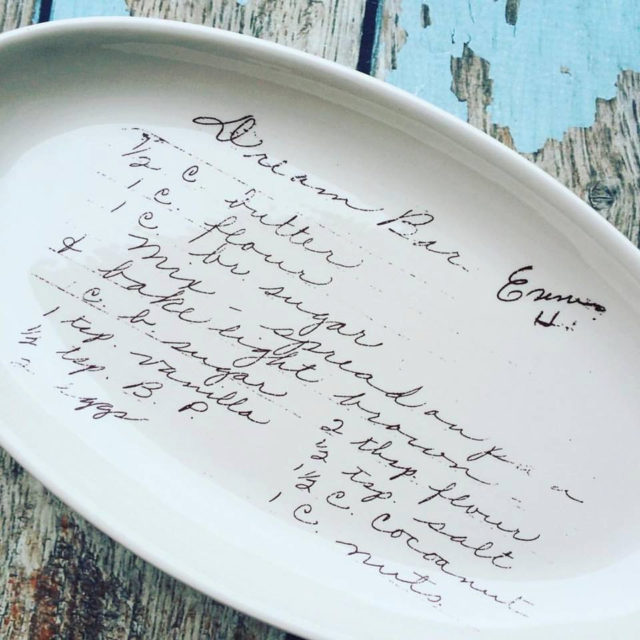 Dream Bar
H.
½ C. butter
1 C. flour
1 C. br sugar
Mix - spread on
& bake light brown -
C. b. sugar
1 tsp. vanilla
½ tsp B. P.
eggs
2 tbsp. flour
½ tsp. salt
1½ C. Cocoanut
1 C. nuts.